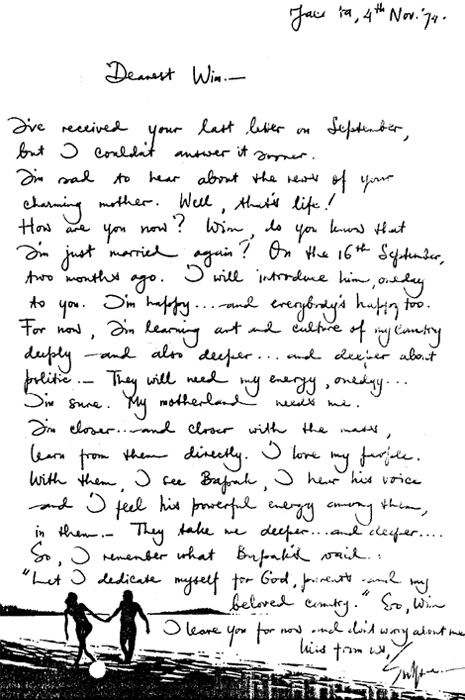 4th Nov. '74.
Dearest Wim.—
I've received your last letter on September,
but I couldn't answer it sooner.
I'm sad to hear about the news of your
charming mother. Well, that's life!
How are you now? Wim, do you know that
I'm just married again? On the 16th September,
two months ago. I will introduce him, oneday
to you. I'm happy...and everybody's happy too.
For now, I'm learning art and culture of my country
deeply —and also deeper... and deeper about
politic.— They will need my energy, oneday...
I'm sure. My motherland needs me.
I'm closer...and closer with the mass,
learn from them directly. I love my people.
With them, I see Bapak, I hear his voice
—and I feel his powerful energy among them,
in them.— They take me deeper...and deeper....
So, I remember what Bapak's said..:
"Let I dedicate myself for God, parents and my
beloved country." So, Wim
I leave you for now and don't worry about me
kiss from us,